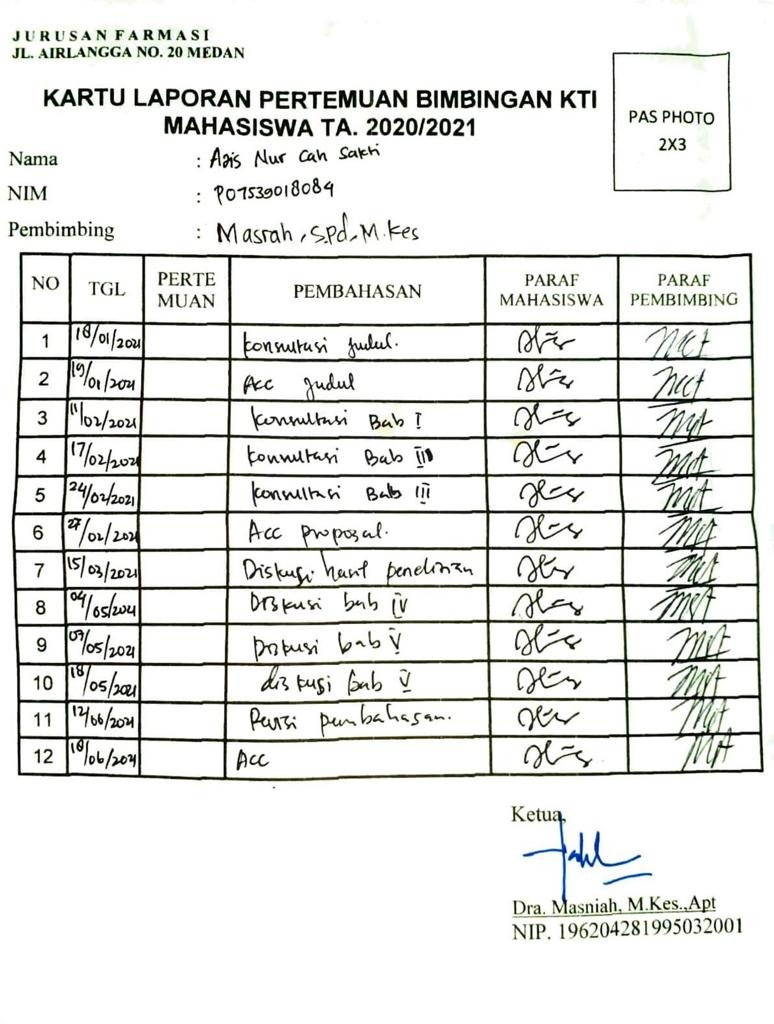 JURUSAN FARMASI
JL. AIRLANGGA NO. 20 MEDAN
KARTU LAPORAN PERTEMUAN BIMBINGAN KTI
MAHASISWA TA. 2020/2021
PAS PHOTO
2X3
Nama : Azis Nur Cah Sakti
NIM : P07539018084
Pembimbing : Masrah, S.Pd, M.Kes
NO TGL PERTE MUAN PEMBAHASAN PARAF MAHASISWA PARAF PEMBIMBING
1 18/01/2021 Konsultasi judul.
2 19/01/2021 Acc judul
3 11/02/2021 Konsultasi Bab I
4 17/02/2021 Konsultasi Bab
5 24/02/2021 Konsultasi Bab III
6 27/02/2021 Acc proposal.
7 15/03/2021 Diskusi hasil penelitian
8 04/05/2021 Diskusi bab IV
9 07/05/2021 Diskusi bab V
10 18/05/2021 diskusi bab V
11 12/06/2021 Revisi pembahasan.
12 18/06/2021 Acc
Ketua,
Dra. Masniah, M.Kes.,Apt
NIP. 196204281995032001